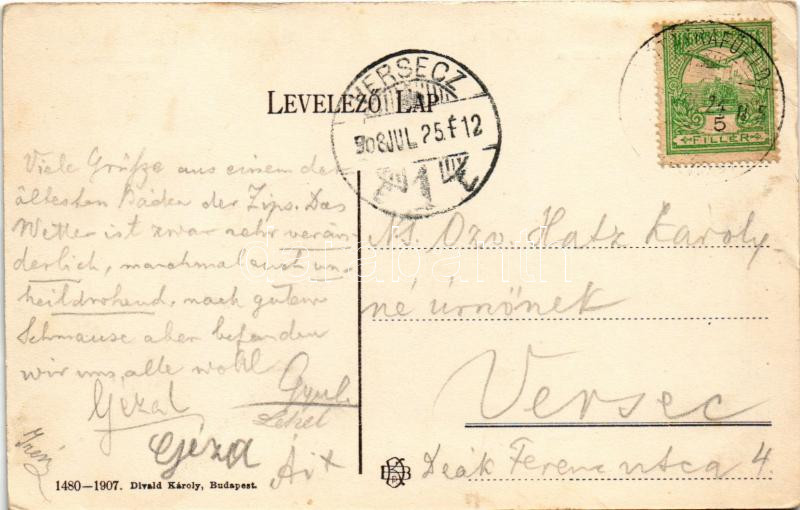 LEVELEZŐ LAP
VERSECZ
908 JUL. 25. F 12
1
24
5
FILLÉR
Viele Grüße aus einem der
ältesten Bäder der Zips. Das
Wetter ist zwar sehr verän-
derlich, manchmal auch un-
heildrohend, nach gutem
Schmause aber befanden
wir uns alle wohl.
Géza
Lehel
Géza
Irén
Ns. Özv. Hatz Károly
né úrnőnek
Versec
Deák Ferenc utca 4.
1480—1907. Divald Károly, Budapest.